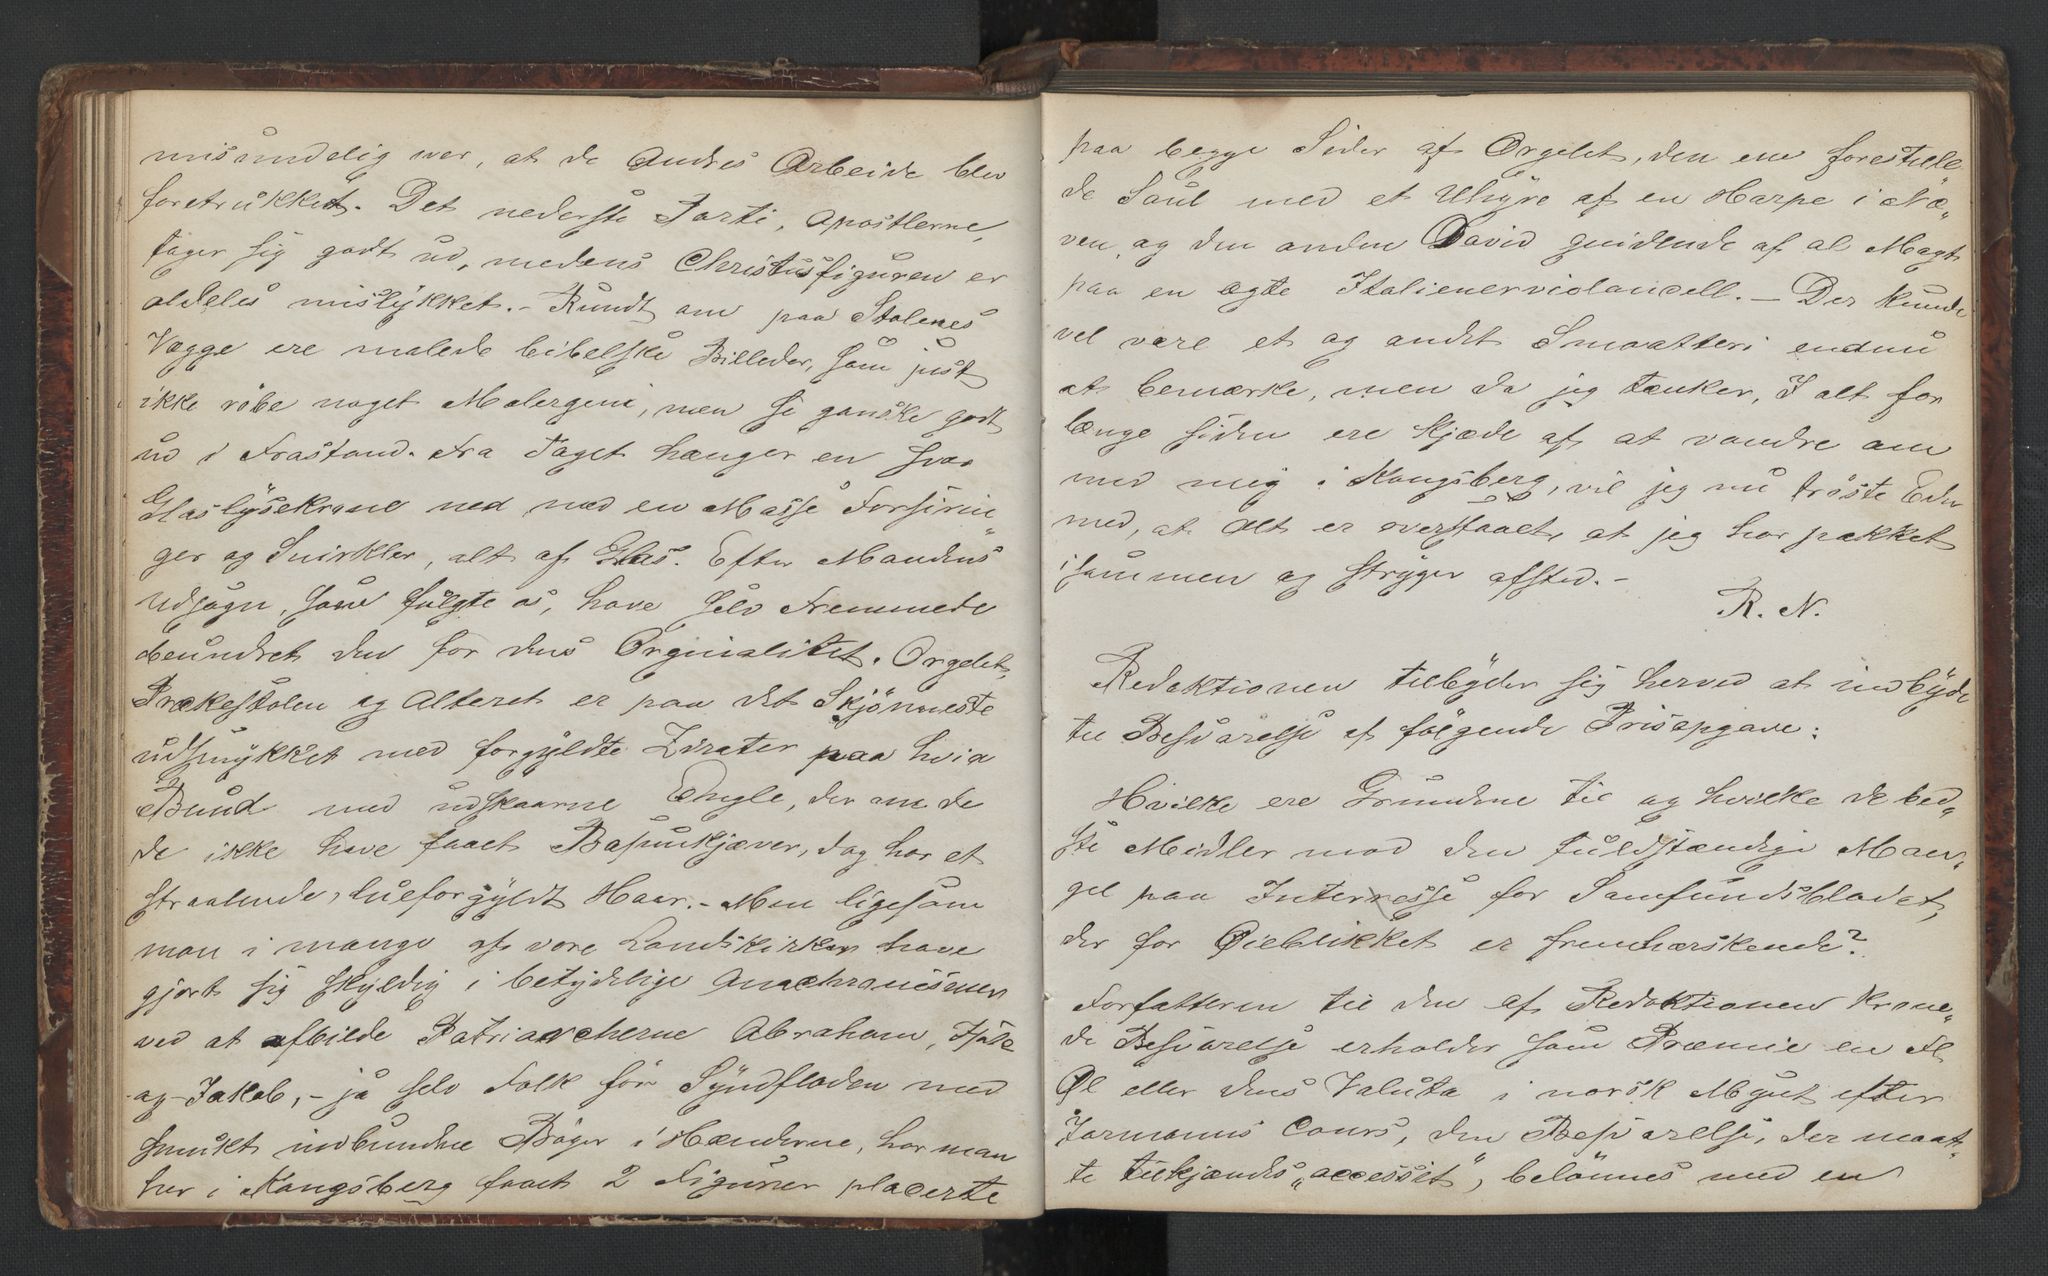 misundelig over, at de Andres Arbeide blev
foretrukket. Det nederste Parti, Apostlerne,
tager sig godt ud, medens Christusfiguren er
aldeles mislykket. – Rundt om paa Stolenes
Vægge ere malede bibelske Billeder, som just
ikke röbe noget Malergeni, men se ganske godt
ud i Frastand. Fra Taget hænger en svær
Glaslysekrone ned med en Masse Forsirin„
ger og Snirkler, alt af Glas. Efter Mandens
Udsagn, som fulgte os, have selv Fremmede
beundret den for dens Orginalitet. Orgelet,
Prækestolen og Alteret er paa det Skjönneste
udsmykket med forgyldte Zirater paa hvid
Bund med udskaarne Engle, der om de
de ikke have faaet Basunkjæver, dog har et
straalende, lueforgyldt Haar. – Men ligesom
man i mange af vore Landskirker have
gjort sig skyldig i betydelige Anachronismer
ved at afbilde Patriarcherne Abraham, Isak
og Jakob, – ja selv Folk för Syndfloden med
smukt indbundne Böger i Hænderne, har man
her i Kongsberg faaet 2 Figurer placerte
paa begge Sider af Orgelet, den ene forestille
de Saul med et Uhyre af en Harpe i Næ„
ven, og den anden David gnidende af al Magt
paa en ægte Italienervioloncell. – Der kunde
vel være et og andet Smaatteri endnu
at bemærke, men da jeg tænker, I alt for
længe siden ere kjede af at vandre om
med mig i Kongsberg, vil jeg nu tröste Eder
med, at Alt er overstaaet, at jeg har pakket
isammen og stryger afsted. –
R. N.
Redaktionen tilbyder sig herved at indbyde
til Besvarelse af fölgende Prisopgave:
Hvilke ere Grundene til og hvilke de bed„
ste Midler mod den fuldstændige Man„
gel paa Interresse for Samfundsbladet,
der for Öieblikket er fremherskende?
Forfatteren til den af Redaktionen krone„
de Besvarelse erholder som Præmie en Fl
Öl eller dens Valuta i norsk Mynt efter
Jormanns Cours, den Besvarelse, der maat„
te tilkjendes „accessit", belönnes med en